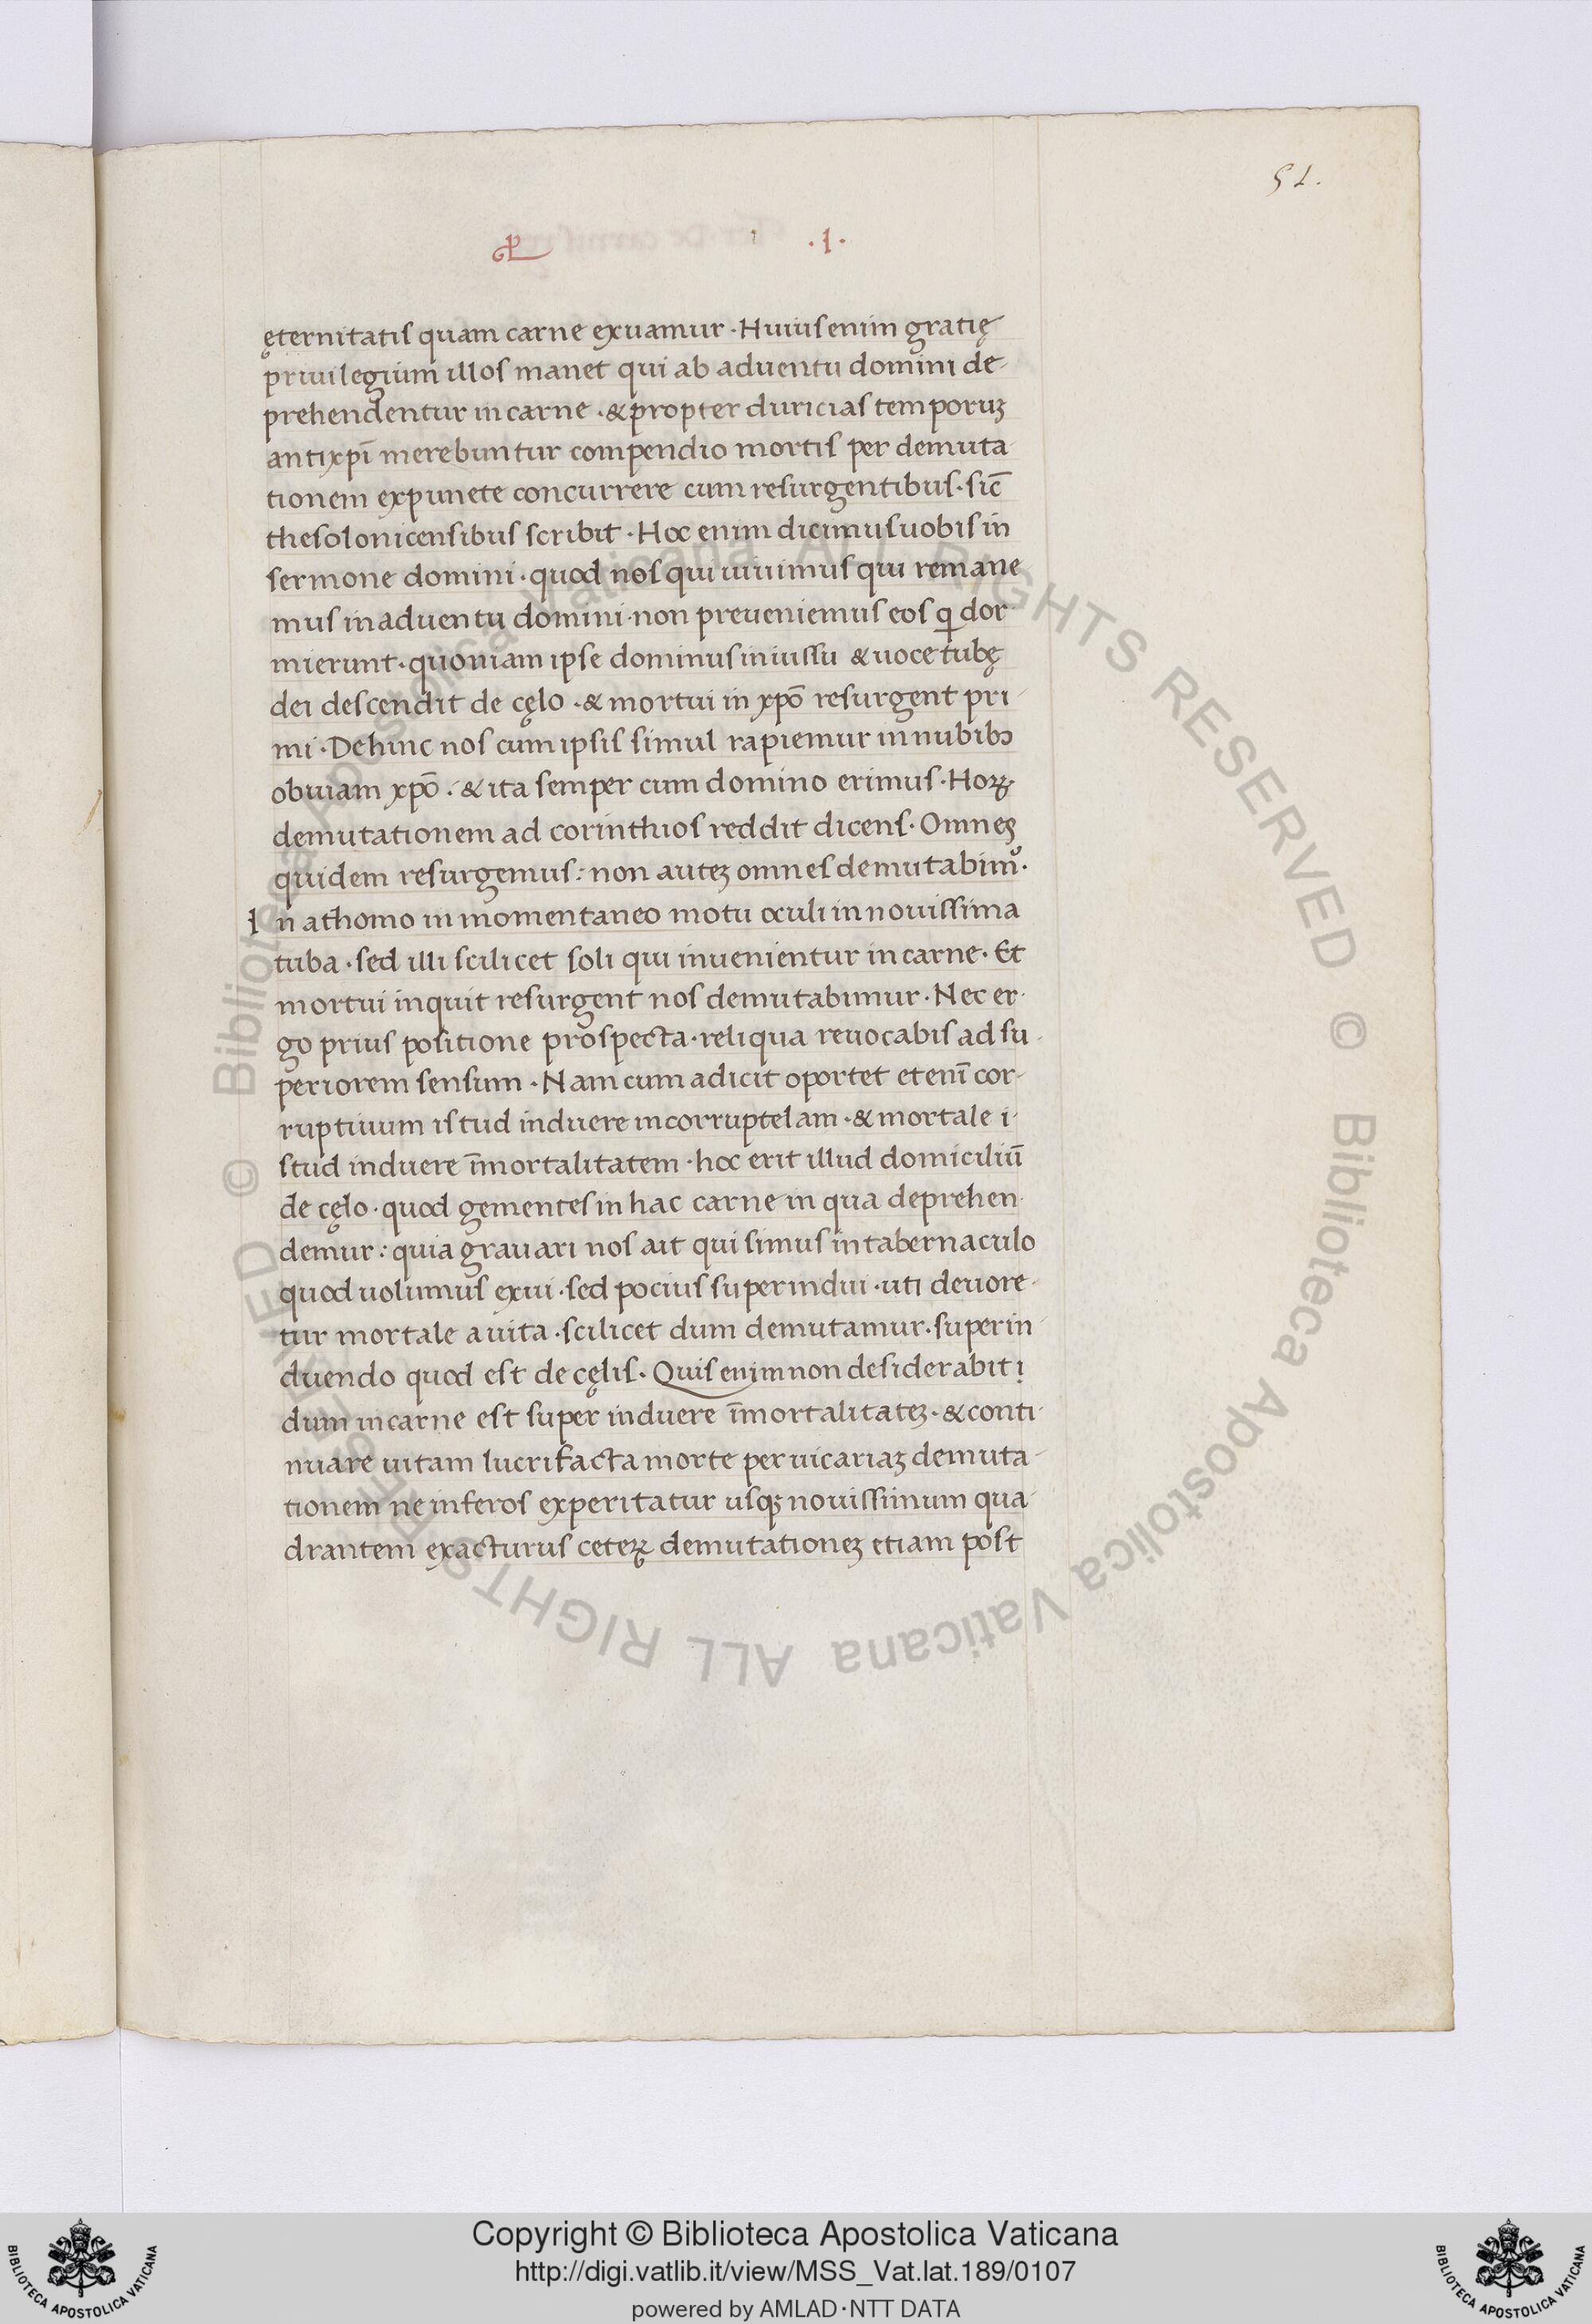 51.
.I.
ęternitatis quam carne exuamur · Huius enim gratię
priuilegium illos manet qui ab aduentu domini de-
prehendentur in carne · & propter duricias temporuꝫ
antixpī merebuntur compendio mortis per demuta-
tionem expunete concurrere cum resurgentibus · sic̄
thesolonicensibus scribit · Hoc enim dicimus uobis in
sermone domini · quod nos qui uiuimus qui remane
mus in aduentu domini · non preueniemus eos q̄ dor-
mierunt · quoniam ipse dominus in iussu & uoce tubę
dei descendit de cęlo · & mortui in xpō resurgent pri-
mi · Dehinc nos cum ipsis simul rapiemur in nubibꝫ
obuiam xpō · & ita semper cum domino erimus · Hoꝝ
demutationem ad corinthios reddit dicens · Omnes
quidem resurgemus : non auteꝫ omnes demutabimꝰ ·
In athomo in momentaneo motu oculi in nouissima
tuba · sed illi scilicet soli qui inuenientur in carne · Et
mortui inquit resurgent nos demutabimur · Nec er-
go prius positione prospecta · reliqua reuocabis ad su-
periorem sensum · Nam cum adicit oportet etenī cor-
ruptiuum istud induere incorruptelam · & mortale i-
stud induere īmortalitatem · hoc erit illud domiciliū
de cęlo · quod gementes in hac carne in qua deprehen-
demur : quia grauari nos ait qui simus in tabernaculo
quod uolumus exui · sed pocius superindui · uti deuore-
tur mortale a uita · scilicet dum demutamur · superin-
duendo quod est de cęlis · Quis enim non desiderabit ?
dum in carne est super induere īmortalitateꝫ · & conti-
nuare uitam lucrifacta morte per uicariaꝫ demuta-
tionem ne inferos experitatur usqꝫ nouissimum qua-
drantem exacturus ceteꝝ demutationeꝫ etiam post
© Biblioteca Apostolica Vaticana ALL RIGHTS RESERVED
© Biblioteca Apostolica Vaticana ALL RIGHTS RESERVED
Copyright © Biblioteca Apostolica Vaticana
http://digi.vatlib.it/view/MSS_Vat.lat.189/0107
powered by AMLAD·NTT DATA
BIBLIOTECA APOSTOLICA VATICANA
BIBLIOTECA APOSTOLICA VATICANA